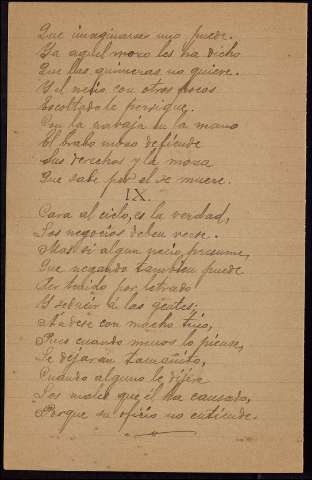 Que imaginarse uno puede.
Ya aquel mozo les ha dicho
Que las quimeras no quiere.
Y el necio con otros pocos
Escoltado le persigue.
Con la navaja en la mano
El brabo mozo defiende
Sus derechos y la moza
Que sabe por el se muere.
IX.
Cara al cielo, es la verdad,
Los negocios deben verse.
Mas si algun necio, presume,
Que negando tambien puede
Ser tenido por letrado
Y seducir á las gentes;
Andese con mucho tino,
Pues cuando menos lo piense,
Le dejarán tamañito,
Cuando alguno le dijere
Los males que él ha causado,
Porque su oficio no entiende.